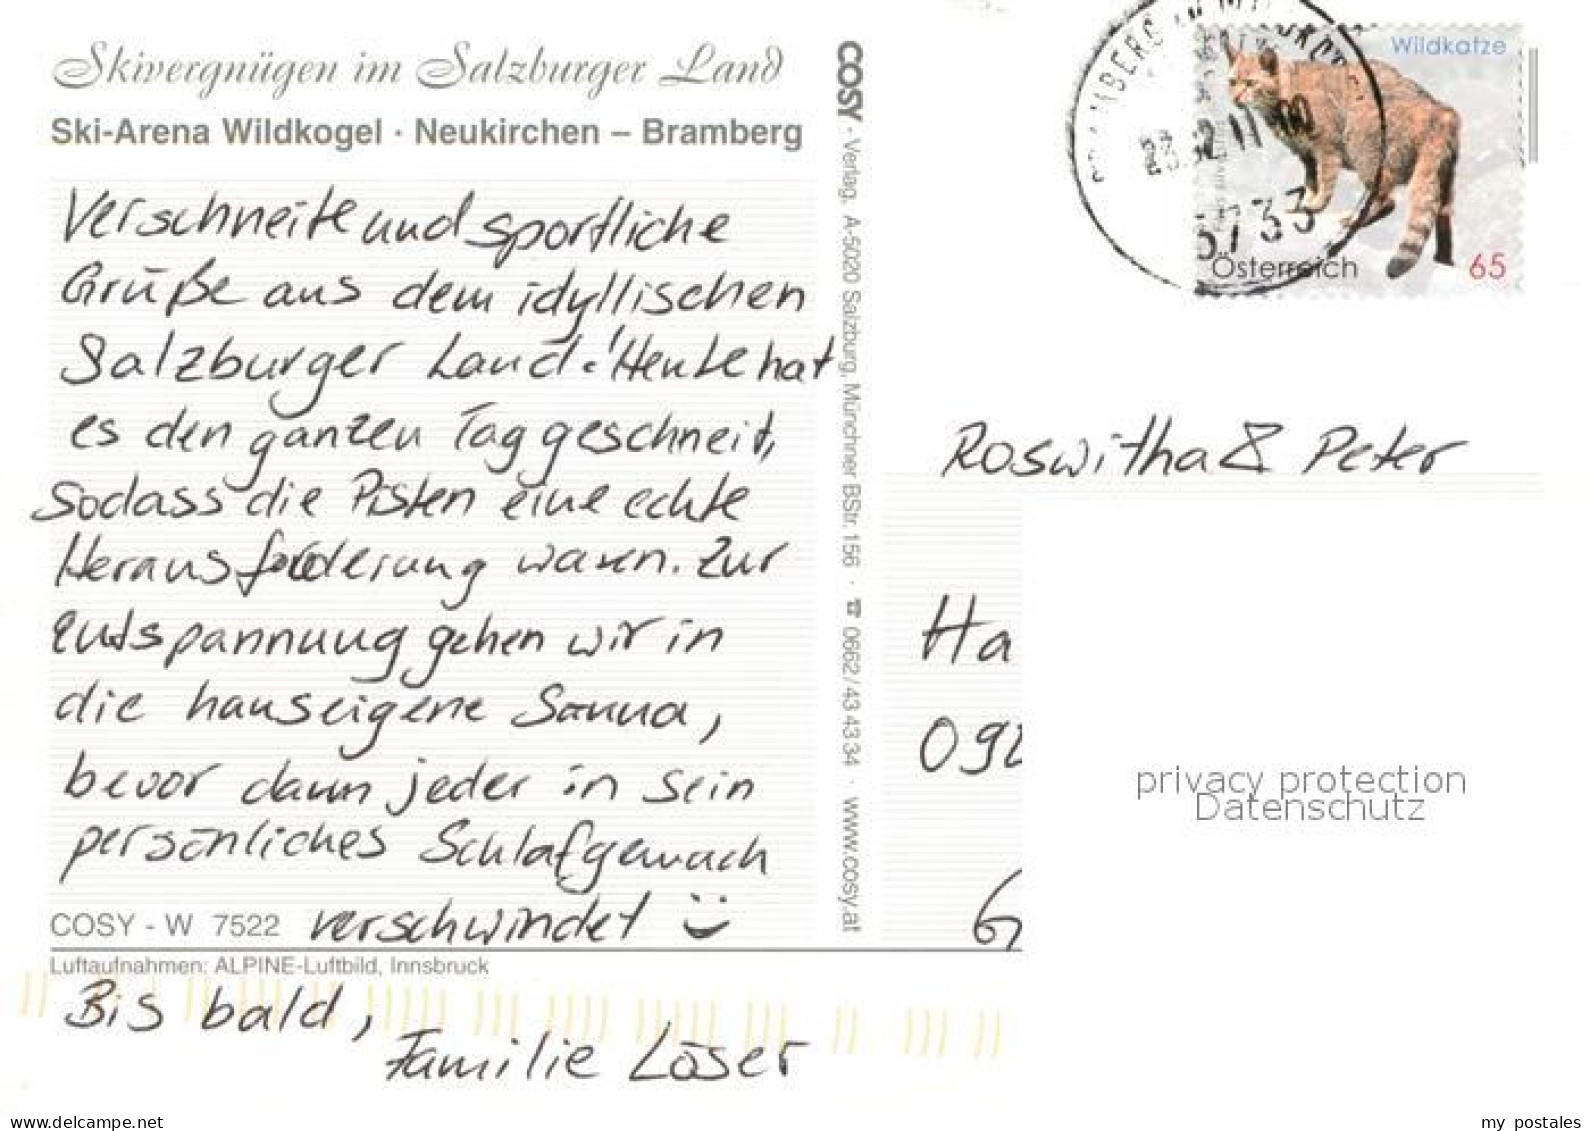 Skivergnügen im Salzburger Land
Ski-Arena Wildkogel · Neukirchen – Bramberg
Verschneite und sportliche
Grüße aus dem idyllischen
Salzburger Land! Heute hat
es den ganzen Tag geschneit,
sodass die Pisten eine echte
Herausforderung waren. Zur
Entspannung gehen wir in
die hauseigene Sauna,
bevor dann jeder in sein
persönliches Schlafgemach
COSY - W 7522 verschwindet
Luftaufnahmen: ALPINE-Luftbild, Innsbruck
Bis bald,
Familie Löser
COSY - Verlag, A-5020 Salzburg, Münchner BStr. 156 · ☎ 0662/43 43 34 · www.cosy.at
Wildkatze
5733
Österreich 65
Roswitha & Peter
Ha
09
privacy protection
Datenschutz
www.delcampe.net
my_postales